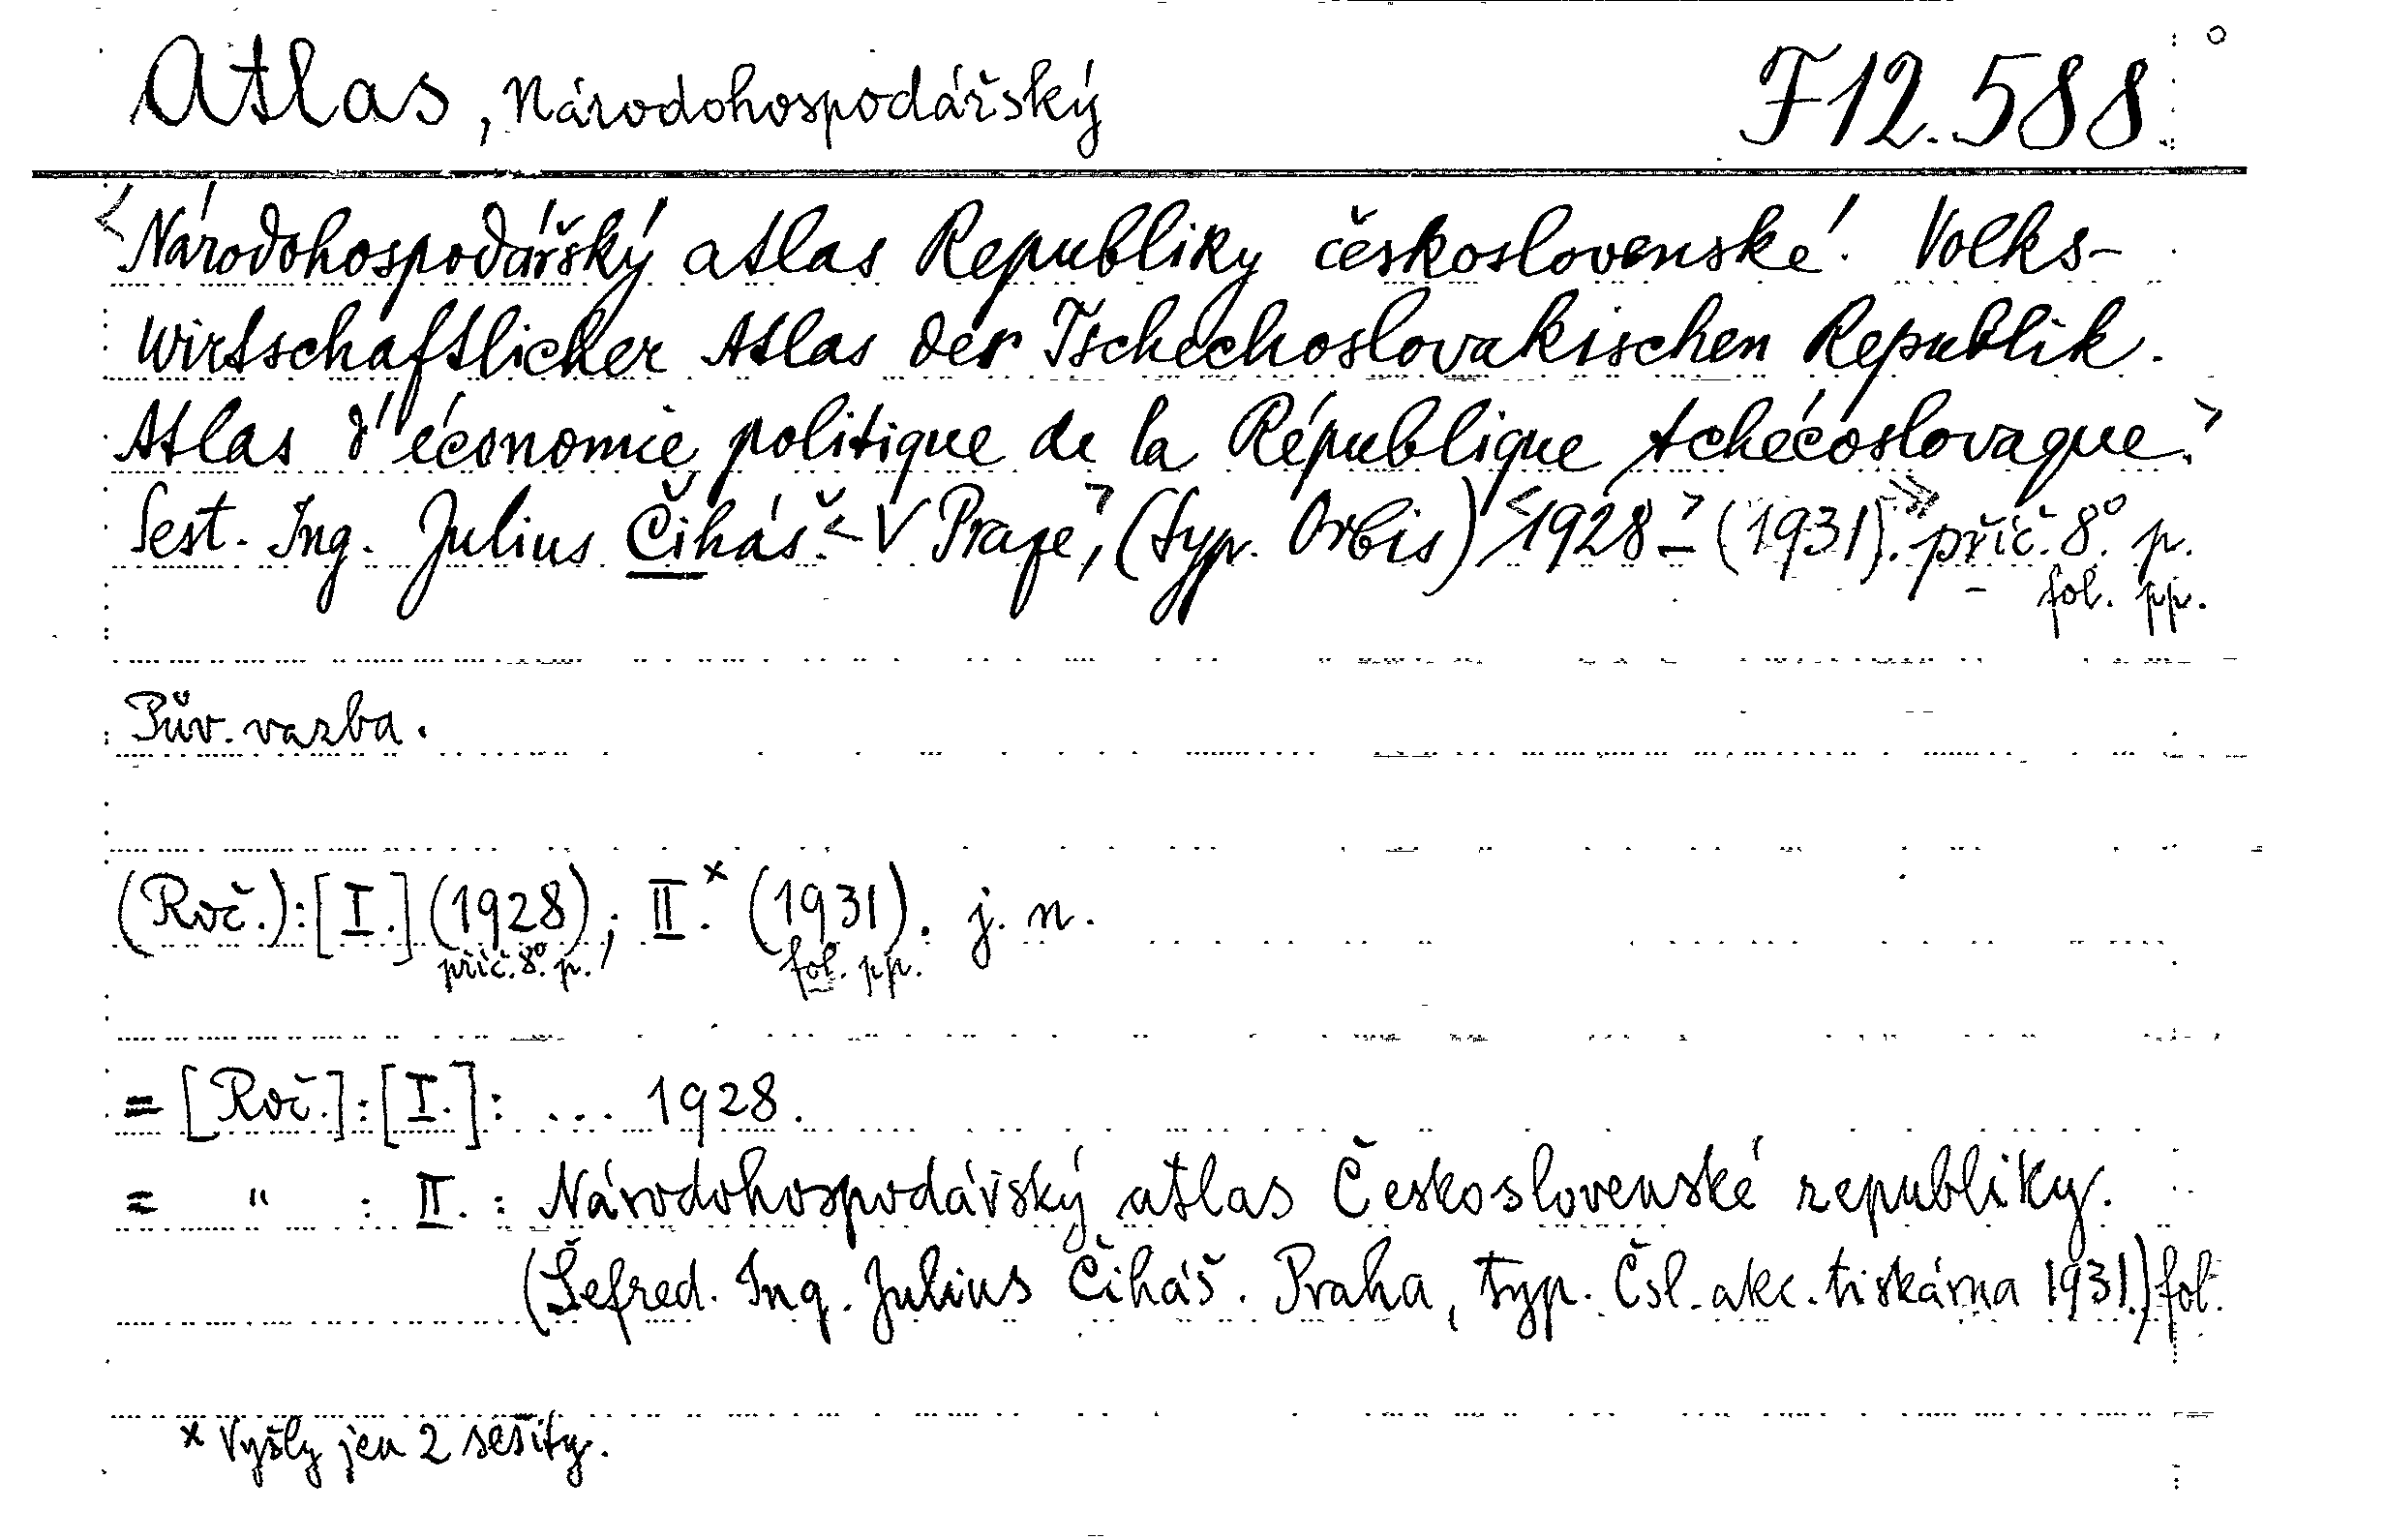 Atlas, Národohospodářský F 12.588
<Národohospodářský atlas Republiky československé. Volks-
wirtschaftlicher Atlas der Tschechoslovakischen Republik.
Atlas d'économie politique de la République tchécoslovaque.>
Sest. Ing. Julius Čiháš. <V Praze>, (typ. Orbis) <1928>–(1931).>> příč. 8°. p.
fol. pp.
Pův. vazba.
(Roč.): [I.] (1928), II.x (1931). j. n.
příč. 8°. p. fol. pp.
= [Roč.]: [I.]: ... 1928.
= " : II. : Národohospodářský atlas Československé republiky.
(Šefred. Ing. Julius Čiháš. Praha, typ. Čsl. akc. tiskárna 1931.) fol.
x Vyšly jen 2 sešity.